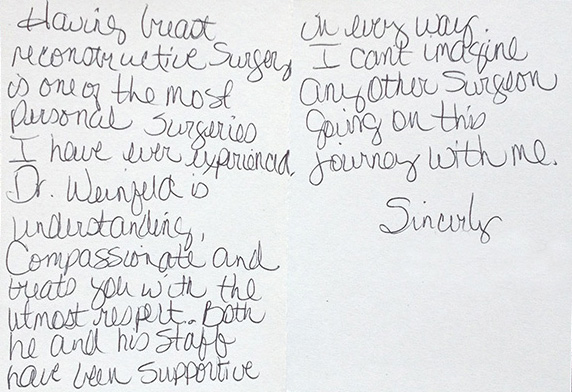 Having breast
reconstructive Surgery
is one of the most
Personal Surgeries
I have ever experienced.
Dr. Weinfeld is
understanding,
Compassionate and
treats you with the
utmost respect. Both
he and his Staff
have been Supportive
in every way.
I cant imagine
any other Surgeon
going on this
journey with me.
Sincerly